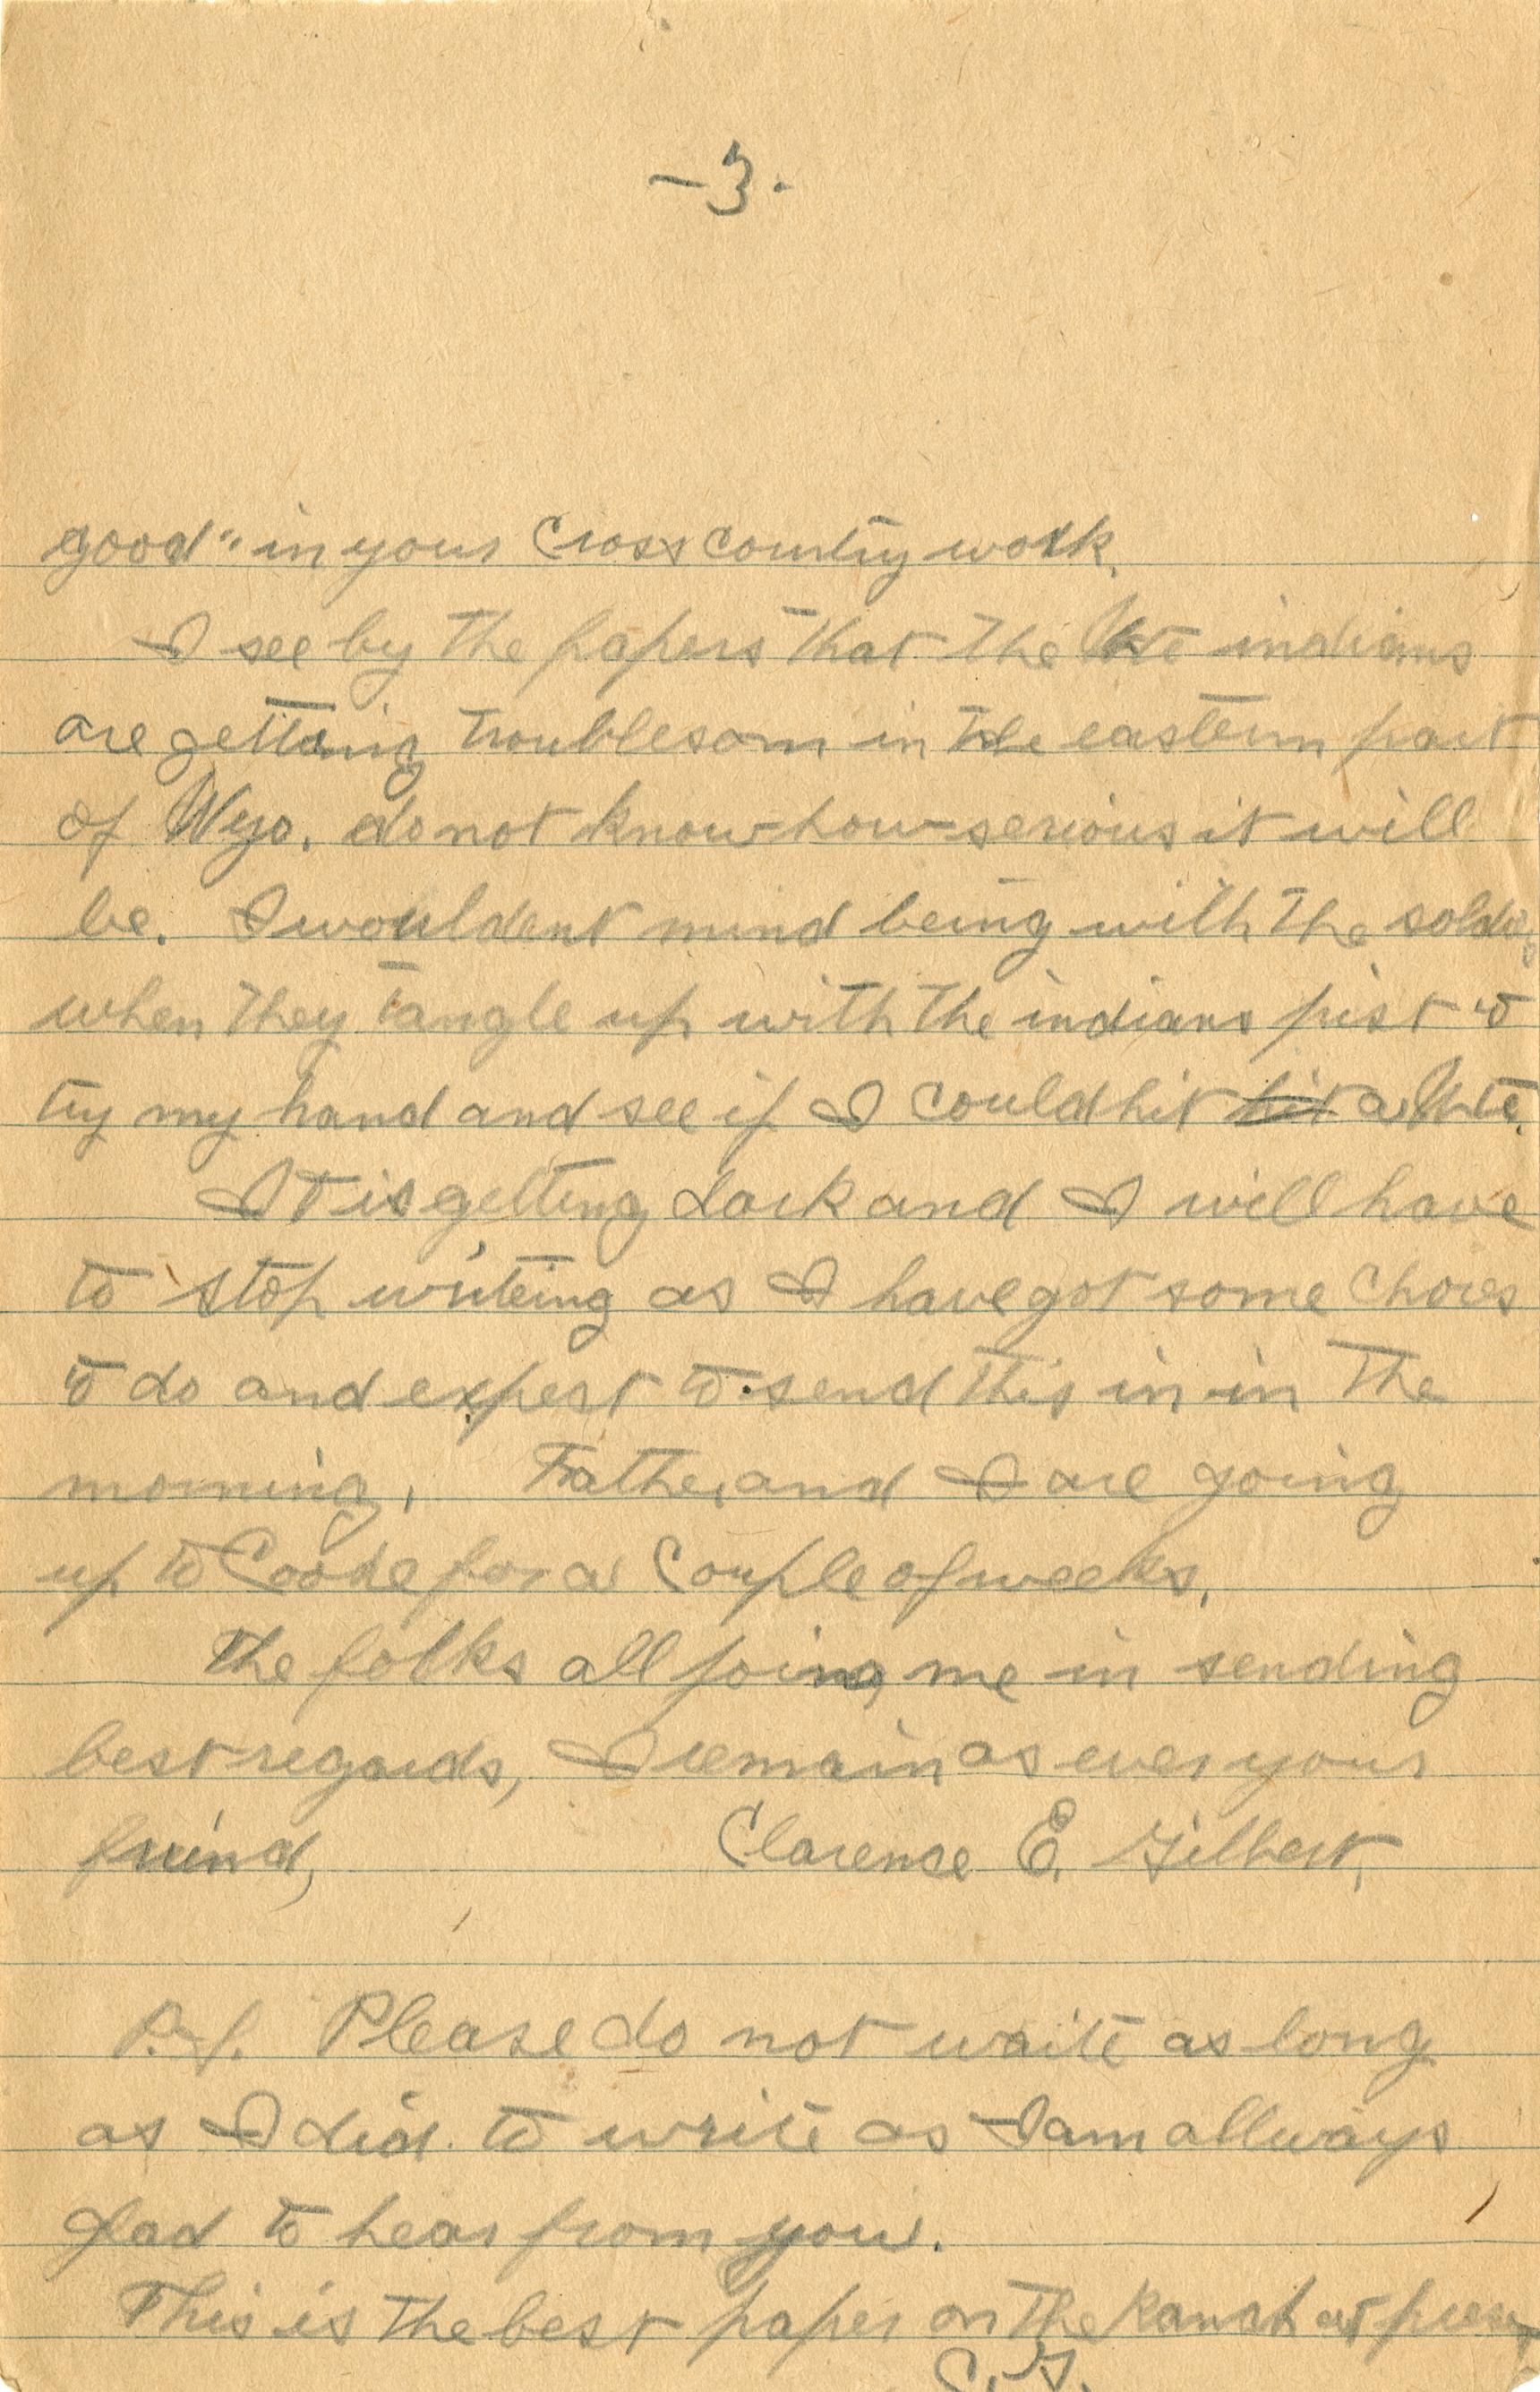 -3.
good" in your Cross country work.
I see by the papers that the Ute indians
are getting troublesom in the eastern part
of Wyo. do not know how serious it will
be. I wouldent mind being with the
when they tangle up with the indians just to
try my hand and see if I could hit hit a Ute.
It is getting dark and I will have
to stop writeing as I have got some chores
to do and expect to send this in in the
morning. Father and I are going
up to Cooke for a Couple of weeks.
The folks all joing me in sending
best regards, I remain as ever your
freind, Clarence E. Gilbert.
P.S. Please do not waite as long
as I did to write as I am allways
glad to hear from you.
This is the best paper on the Ranch at
C.G.